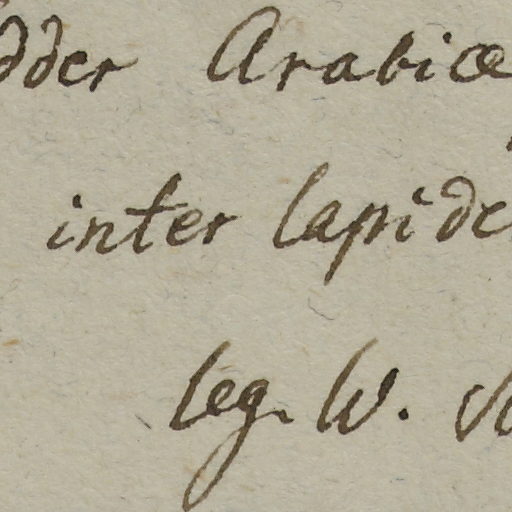 dder Arabiæ
inter lapide
leg. W.